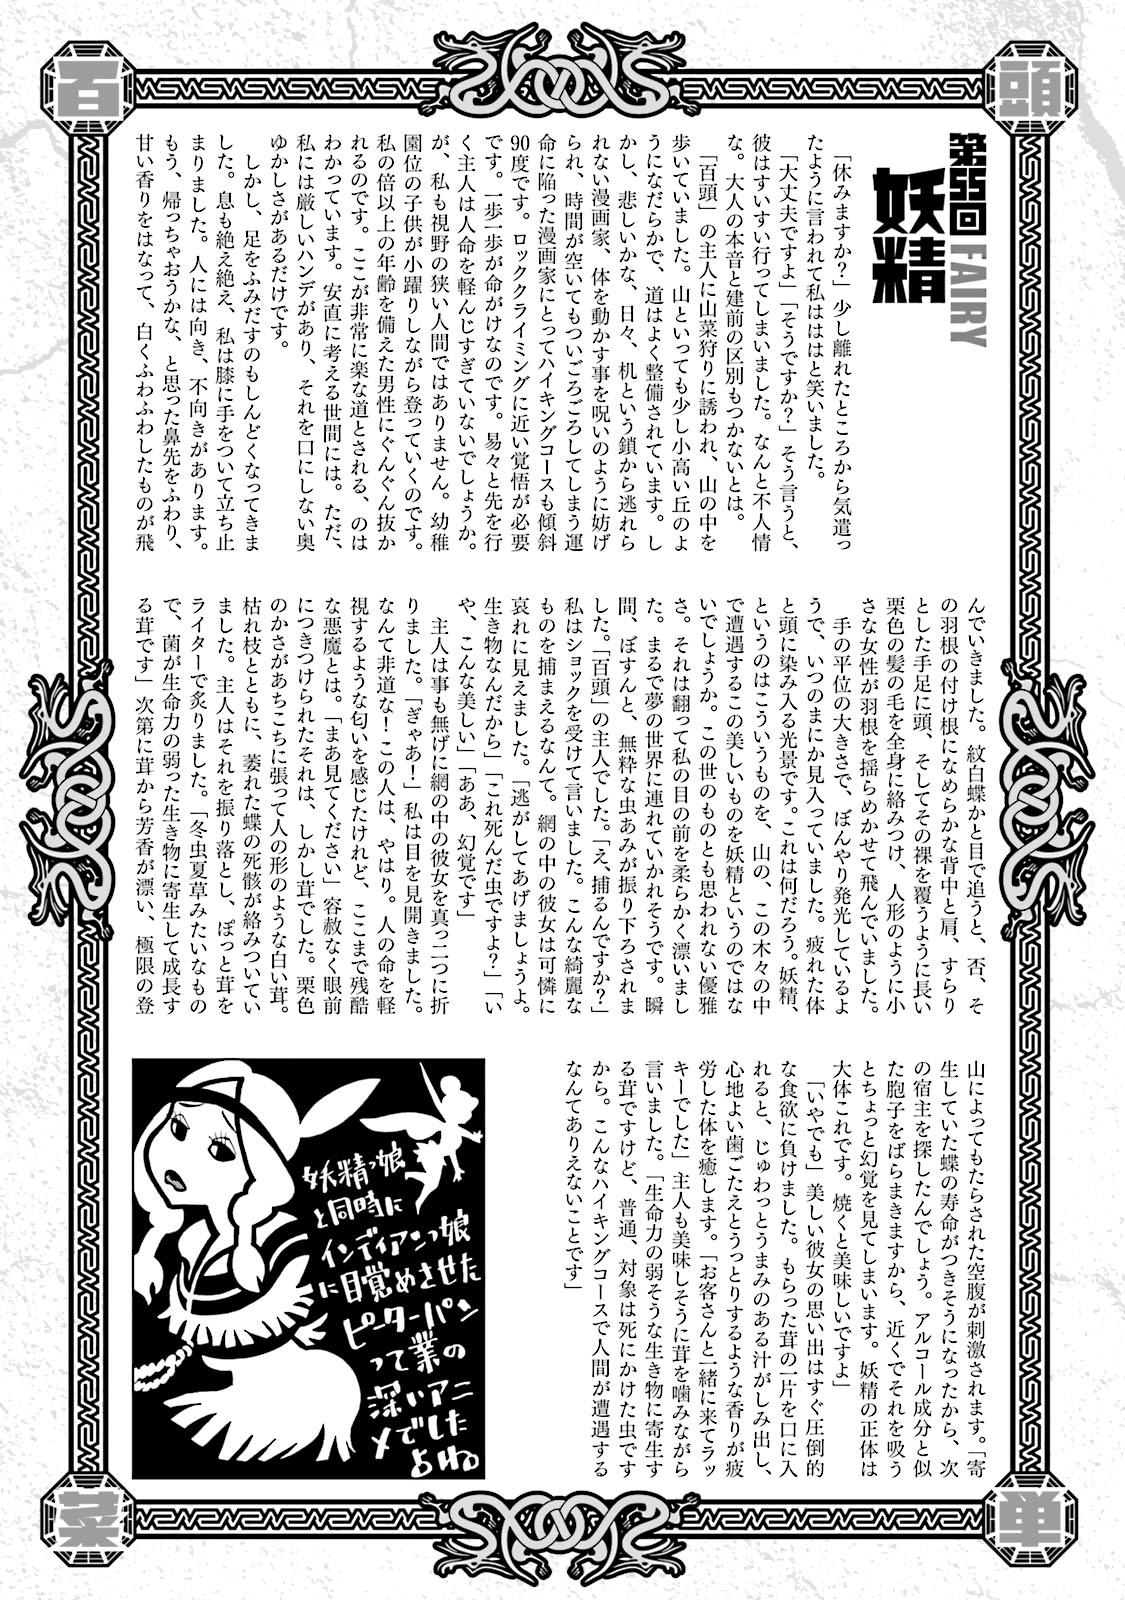 百
頭
第55回
妖精
FAIRY
「休みますか？」少し離れたところから気遣っ
たように言われて私ははははと笑いました。
「大丈夫ですよ」「そうですか？」そう言うと、
彼はすいすい行ってしまいました。なんと不人情
な。大人の本音と建前の区別もつかないとは。
「百頭」の主人に山菜狩りに誘われ、山の中を
歩いていました。山といっても少し小高い丘のよ
うになだらかで、道はよく整備されています。し
かし、悲しいかな、日々、机という鎖から逃れら
れない漫画家、体を動かす事を呪いのように妨げ
られ、時間が空いてもついごろごろしてしまう運
命に陥った漫画家にとってハイキングコースも傾斜
90度です。ロッククライミングに近い覚悟が必要
です。一歩一歩が命がけなのです。易々と先を行
く主人は人命を軽んじすぎていないでしょうか。
が、私も視野の狭い人間ではありません。幼稚
園位の子供が小躍りしながら登っていくのです。
私の倍以上の年齢を備えた男性にぐんぐん抜か
れるのです。ここが非常に楽な道とされる、のは
わかっています。安直に考える世間には。ただ、
私には厳しいハンデがあり、それを口にしない奥
ゆかしさがあるだけです。
しかし、足をふみだすのもしんどくなってきま
した。息も絶え絶え、私は膝に手をついて立ち止
まりました。人には向き、不向きがあります。
もう、帰っちゃおうかな、と思った鼻先をふわり、
甘い香りをはなって、白くふわふわしたものが飛
んでいきました。紋白蝶かと目で追うと、否、そ
の羽根の付け根になめらかな背中と肩、すらり
とした手足に頭、そしてその裸を覆うように長い
栗色の髪の毛を全身に絡みつけ、人形のように小
さな女性が羽根を揺らめかせて飛んでいました。
手の平位の大きさで、ぼんやり発光しているよ
うで、いつのまにか見入っていました。疲れた体
と頭に染み入る光景です。これは何だろう。妖精、
というのはこういうものを、山の、この木々の中
で遭遇するこの美しいものを妖精というのではな
いでしょうか。この世のものとも思われない優雅
さ。それは翻って私の目の前を柔らかく漂いまし
た。まるで夢の世界に連れていかれそうです。瞬
間、ぼすんと、無粋な虫あみが振り下ろされま
した。「百頭」の主人でした。「え、捕るんですか？」
私はショックを受けて言いました。こんな綺麗な
ものを捕まえるなんて。網の中の彼女は可憐に
哀れに見えました。「逃がしてあげましょうよ。
生き物なんだから」「これ死んだ虫ですよ？」「い
や、こんな美しい」「ああ、幻覚です」
主人は事も無げに網の中の彼女を真っ二つに折
りました。「ぎゃあ！」私は目を見開きました。
なんて非道な！この人は、やはり。人の命を軽
視するような匂いを感じたけれど、ここまで残酷
な悪魔とは。「まあ見てください」容赦なく眼前
につきつけられたそれは、しかし茸でした。栗色
のかさがあちこちに張って人の形のような白い茸。
枯れ枝とともに、萎れた蝶の死骸が絡みついてい
ました。主人はそれを振り落とし、ぽっと茸を
ライターで炙りました。「冬虫夏草みたいなもの
で、菌が生命力の弱った生き物に寄生して成長す
る茸です」次第に茸から芳香が漂い、極限の登
山によってもたらされた空腹が刺激されます。「寄
生していた蝶の寿命がつきそうになったから、次
の宿主を探したんでしょう。アルコール成分と似
た胞子をばらまきますから、近くでそれを吸う
とちょっと幻覚を見てしまいます。妖精の正体は
大体これです。焼くと美味しいですよ」
「いやでも」美しい彼女の思い出はすぐ圧倒的
な食欲に負けました。もらった茸の一片を口に入
れると、じゅわっとうまみのある汁がしみ出し、
心地よい歯ごたえとうっとりするような香りが疲
労した体を癒します。「お客さんと一緒に来てラッ
キーでした」主人も美味しそうに茸を噛みながら
言いました。「生命力の弱そうな生き物に寄生す
る茸ですけど、普通、対象は死にかけた虫です
から。こんなハイキングコースで人間が遭遇する
なんてありえないことです」
妖精っ娘
と同時に
インディアンっ娘
に目覚めさせた
ピーターパン
って業の
深いアニ
メでした
よね
菜
単